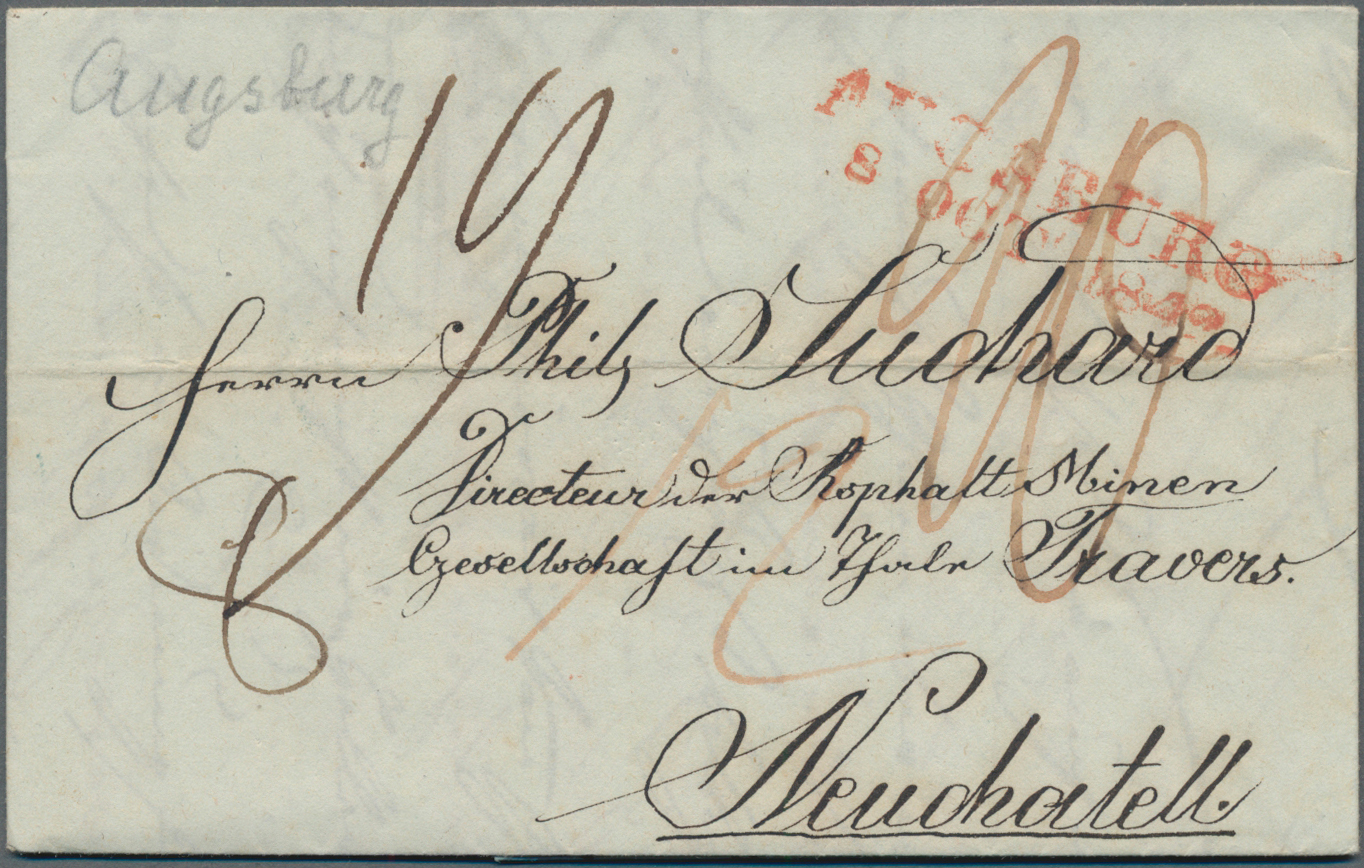 Augsburg
AUGSBURG
8 OCT. 1842
19
12
Herrn Phil. Suchard
Directeur der Asphalt Minen
Gesellschaft im Thale Travers.
Neuchatell.